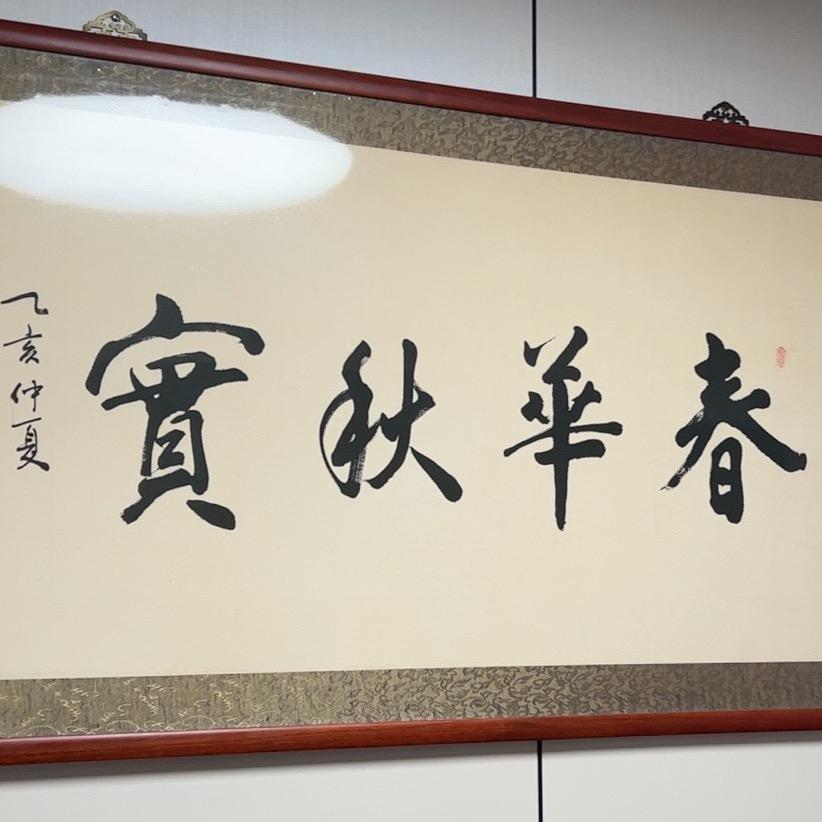 春華秋實
乙亥仲夏